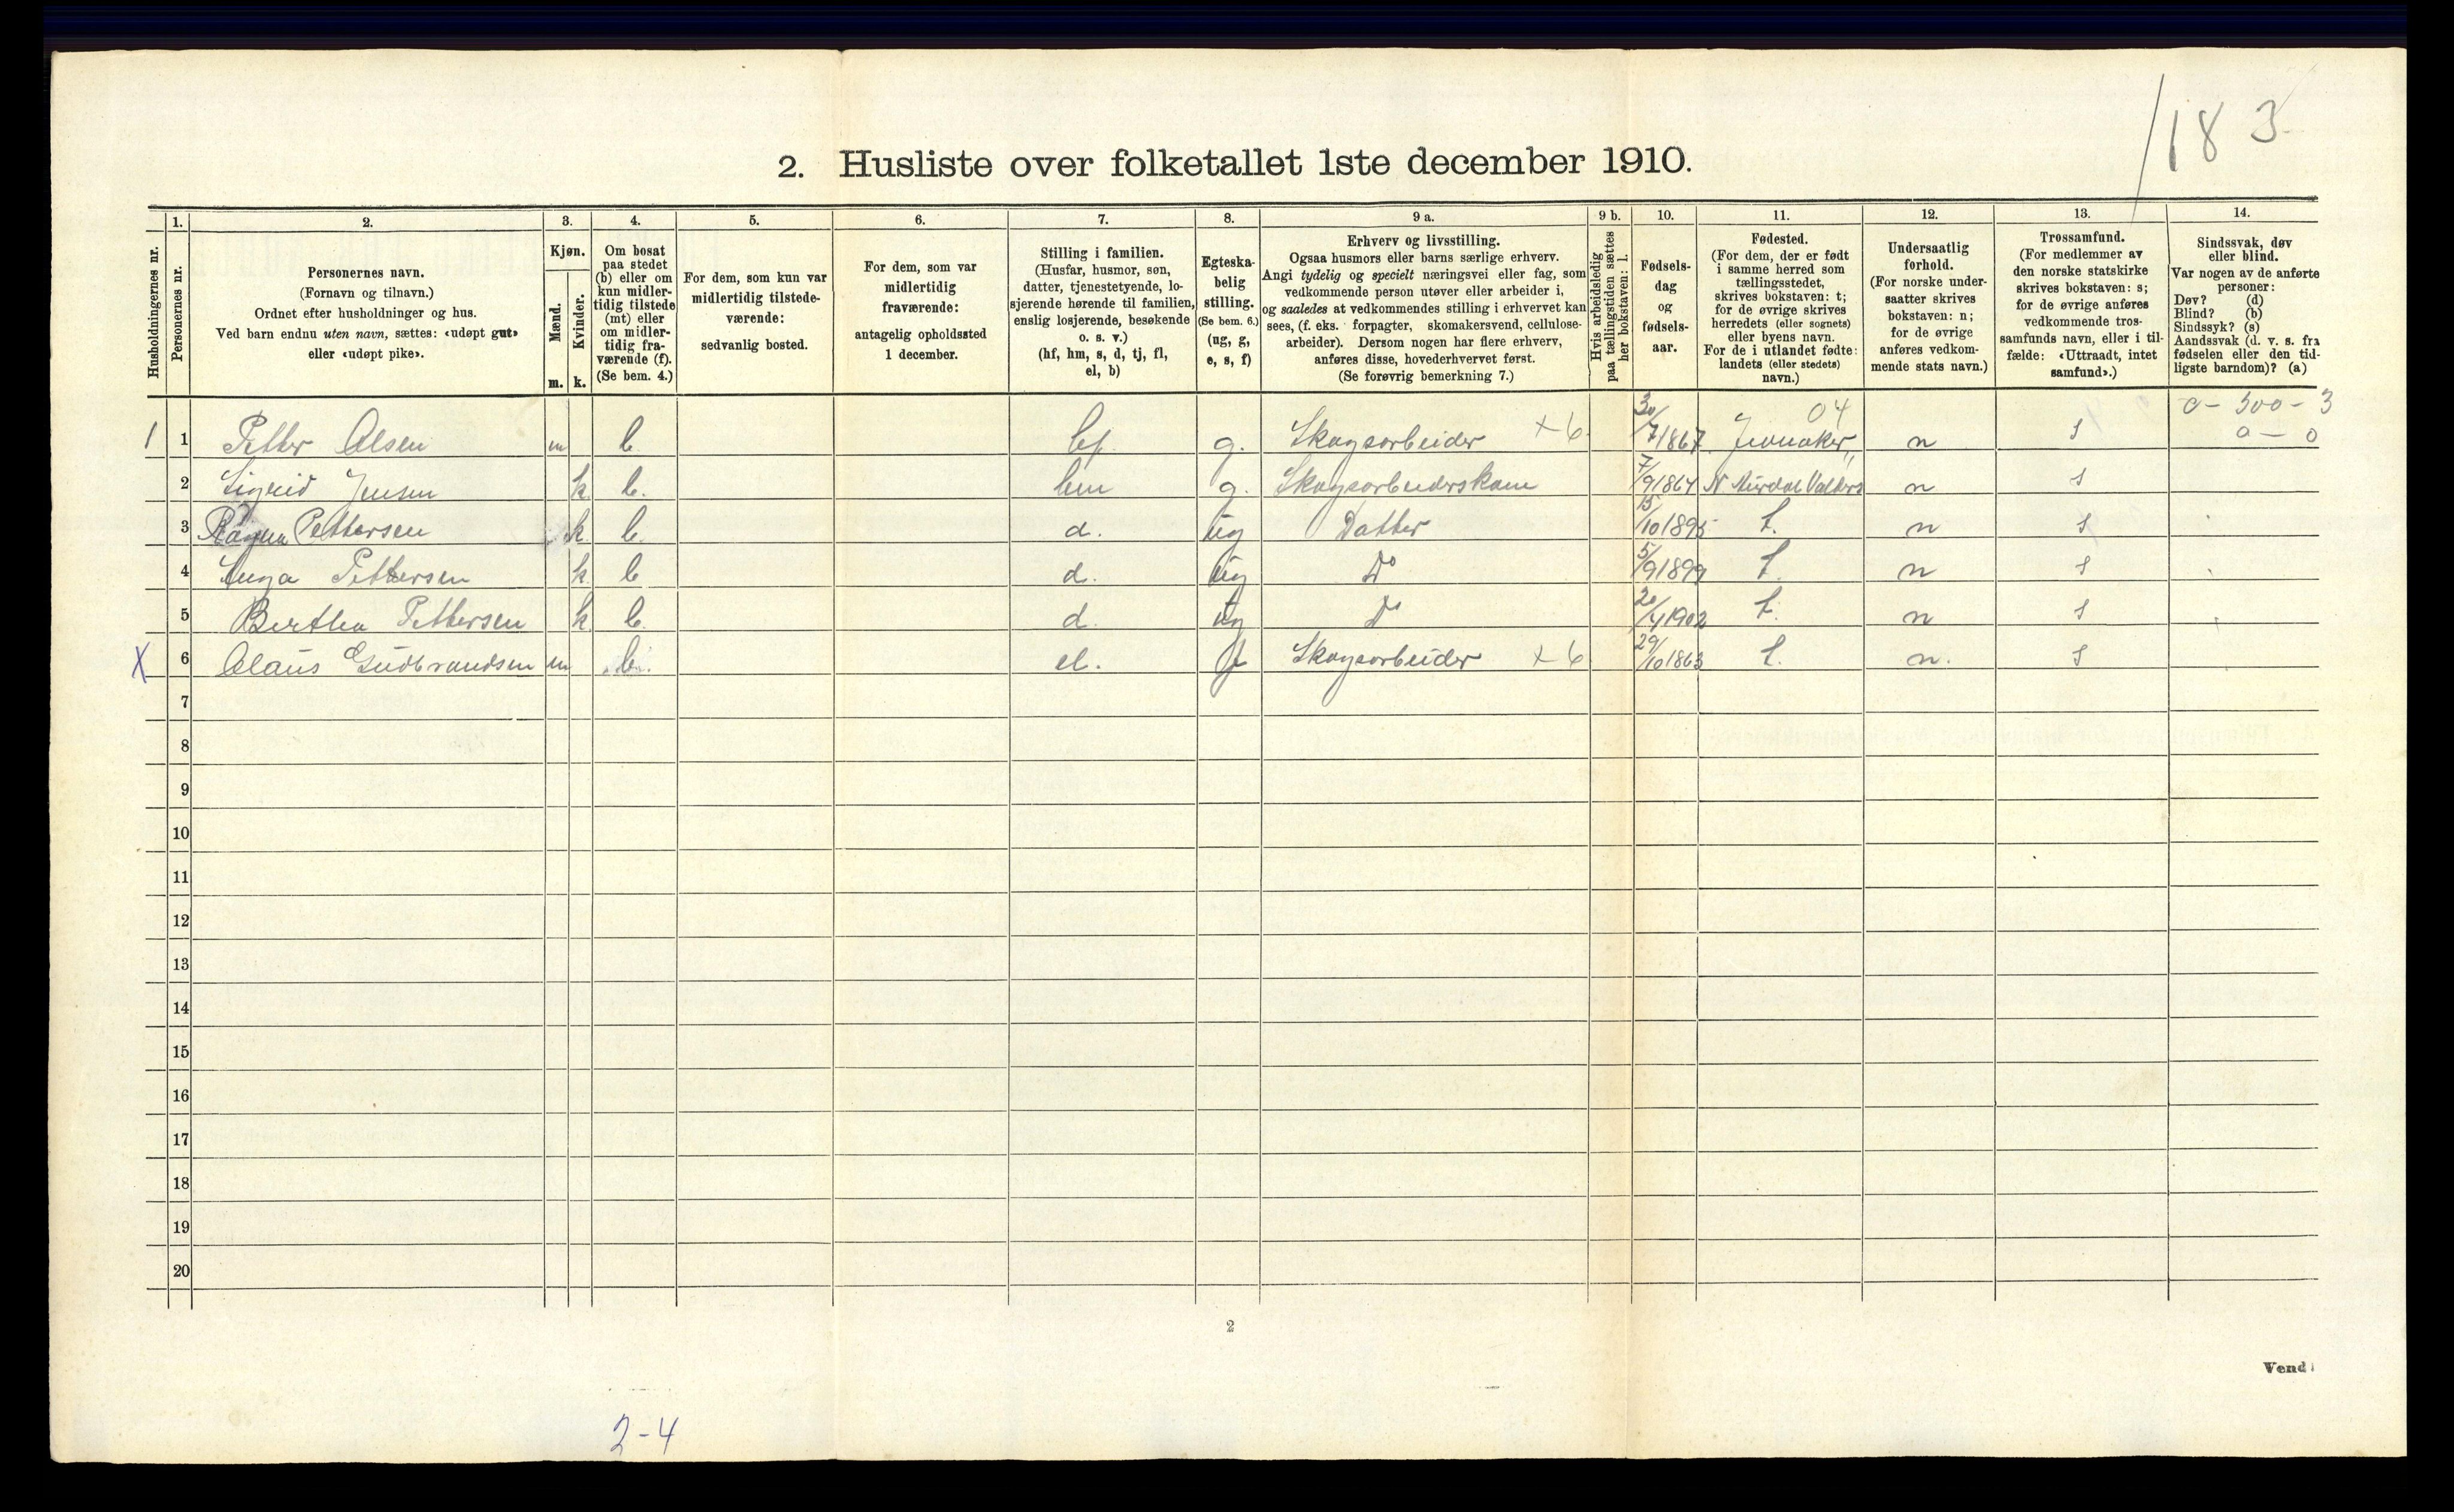 183
2. Husliste over folketallet 1ste december 1910.
Husholdningernes nr.
1.
Personernes nr.
2.
Personernes navn.
(Fornavn og tilnavn.)
Ordnet efter husholdninger og hus.
Ved barn endnu uten navn, sættes: «udøpt gut»
eller «udøpt pike».
3.
Kjøn.
Mænd.
m.
Kvinder.
k.
4.
Om bosat
paa stedet
(b) eller om
kun midler-
tidig tilstede
(mt) eller
om midler-
tidig fra-
værende (f).
(Se bem. 4.)
5.
For dem, som kun var
midlertidig tilstede-
værende:
sedvanlig bosted.
6.
For dem, som var
midlertidig
fraværende:
antagelig opholdssted
1 december.
7.
Stilling i familien.
(Husfar, husmor, søn,
datter, tjenestetyende, lo-
sjerende hørende til familien,
enslig losjerende, besøkende
o. s. v.)
(hf, hm, s, d, tj, fl,
el, b)
8.
Egteska-
belig
stilling.
(Se bem. 6.)
(ug, g,
e, s, f)
9 a.
Erhverv og livsstilling.
Ogsaa husmors eller barns særlige erhverv.
Angi tydelig og specielt næringsvei eller fag, som
vedkommende person utøver eller arbeider i,
og saaledes at vedkommendes stilling i erhvervet kan
sees, (f. eks. forpagter, skomakersvend, cellulose-
arbeider). Dersom nogen har flere erhverv,
anføres disse, hovederhvervet først.
(Se forøvrig bemerkning 7.)
9 b.
Hvis arbeidsledig
paa tællingstiden sættes
her bokstaven: l.
10.
Fødsels-
dag
og
fødsels-
aar.
11.
Fødested.
(For dem, der er født
i samme herred som
tællingsstedet,
skrives bokstaven: t;
for de øvrige skrives
herredets (eller sognets)
eller byens navn.
For de i utlandet fødte:
landets (eller stedets)
navn.)
12.
Undersaatlig
forhold.
(For norske under-
saatter skrives
bokstaven: n;
for de øvrige
anføres vedkom-
mende stats navn.)
13.
Trossamfund.
(For medlemmer av
den norske statskirke
skrives bokstaven: s;
for de øvrige anføres
vedkommende tros-
samfunds navn, eller i til-
fælde: «Uttraadt, intet
samfund».)
14.
Sindssvak, døv
eller blind.
Var nogen av de anførte
personer:
Døv? (d)
Blind? (b)
Sindssyk? (s)
Aandssvak (d. v. s. fra
fødselen eller den tid-
ligste barndom)? (a)
04 0-500-3
1 1 Petter Olsen m b hf. g. Skogsarbeider +6 30/7 1867 Jevnaker n s 0-0
2 Sigrid Jensen k b. hm g. Skogsarbeiderskone 7/9 1864 N Aurdal Valders n s
3 Ragna Pettersen k b. d. ug Datter 15/10 1895 t. n s
4 Inga Pettersen k b d. ug Do 5/9 1899 t. n s
5 Bertha Pettersen k b. d. ug Do 20/4 1902 t. n s
X 6 Olaus Gudbrandsen m b. el. f Skogsarbeider +6 29/10 1863 t. n. s
7
8
9
10
11
12
13
14
15
16
17
18
19
20
2
Vend
2-4